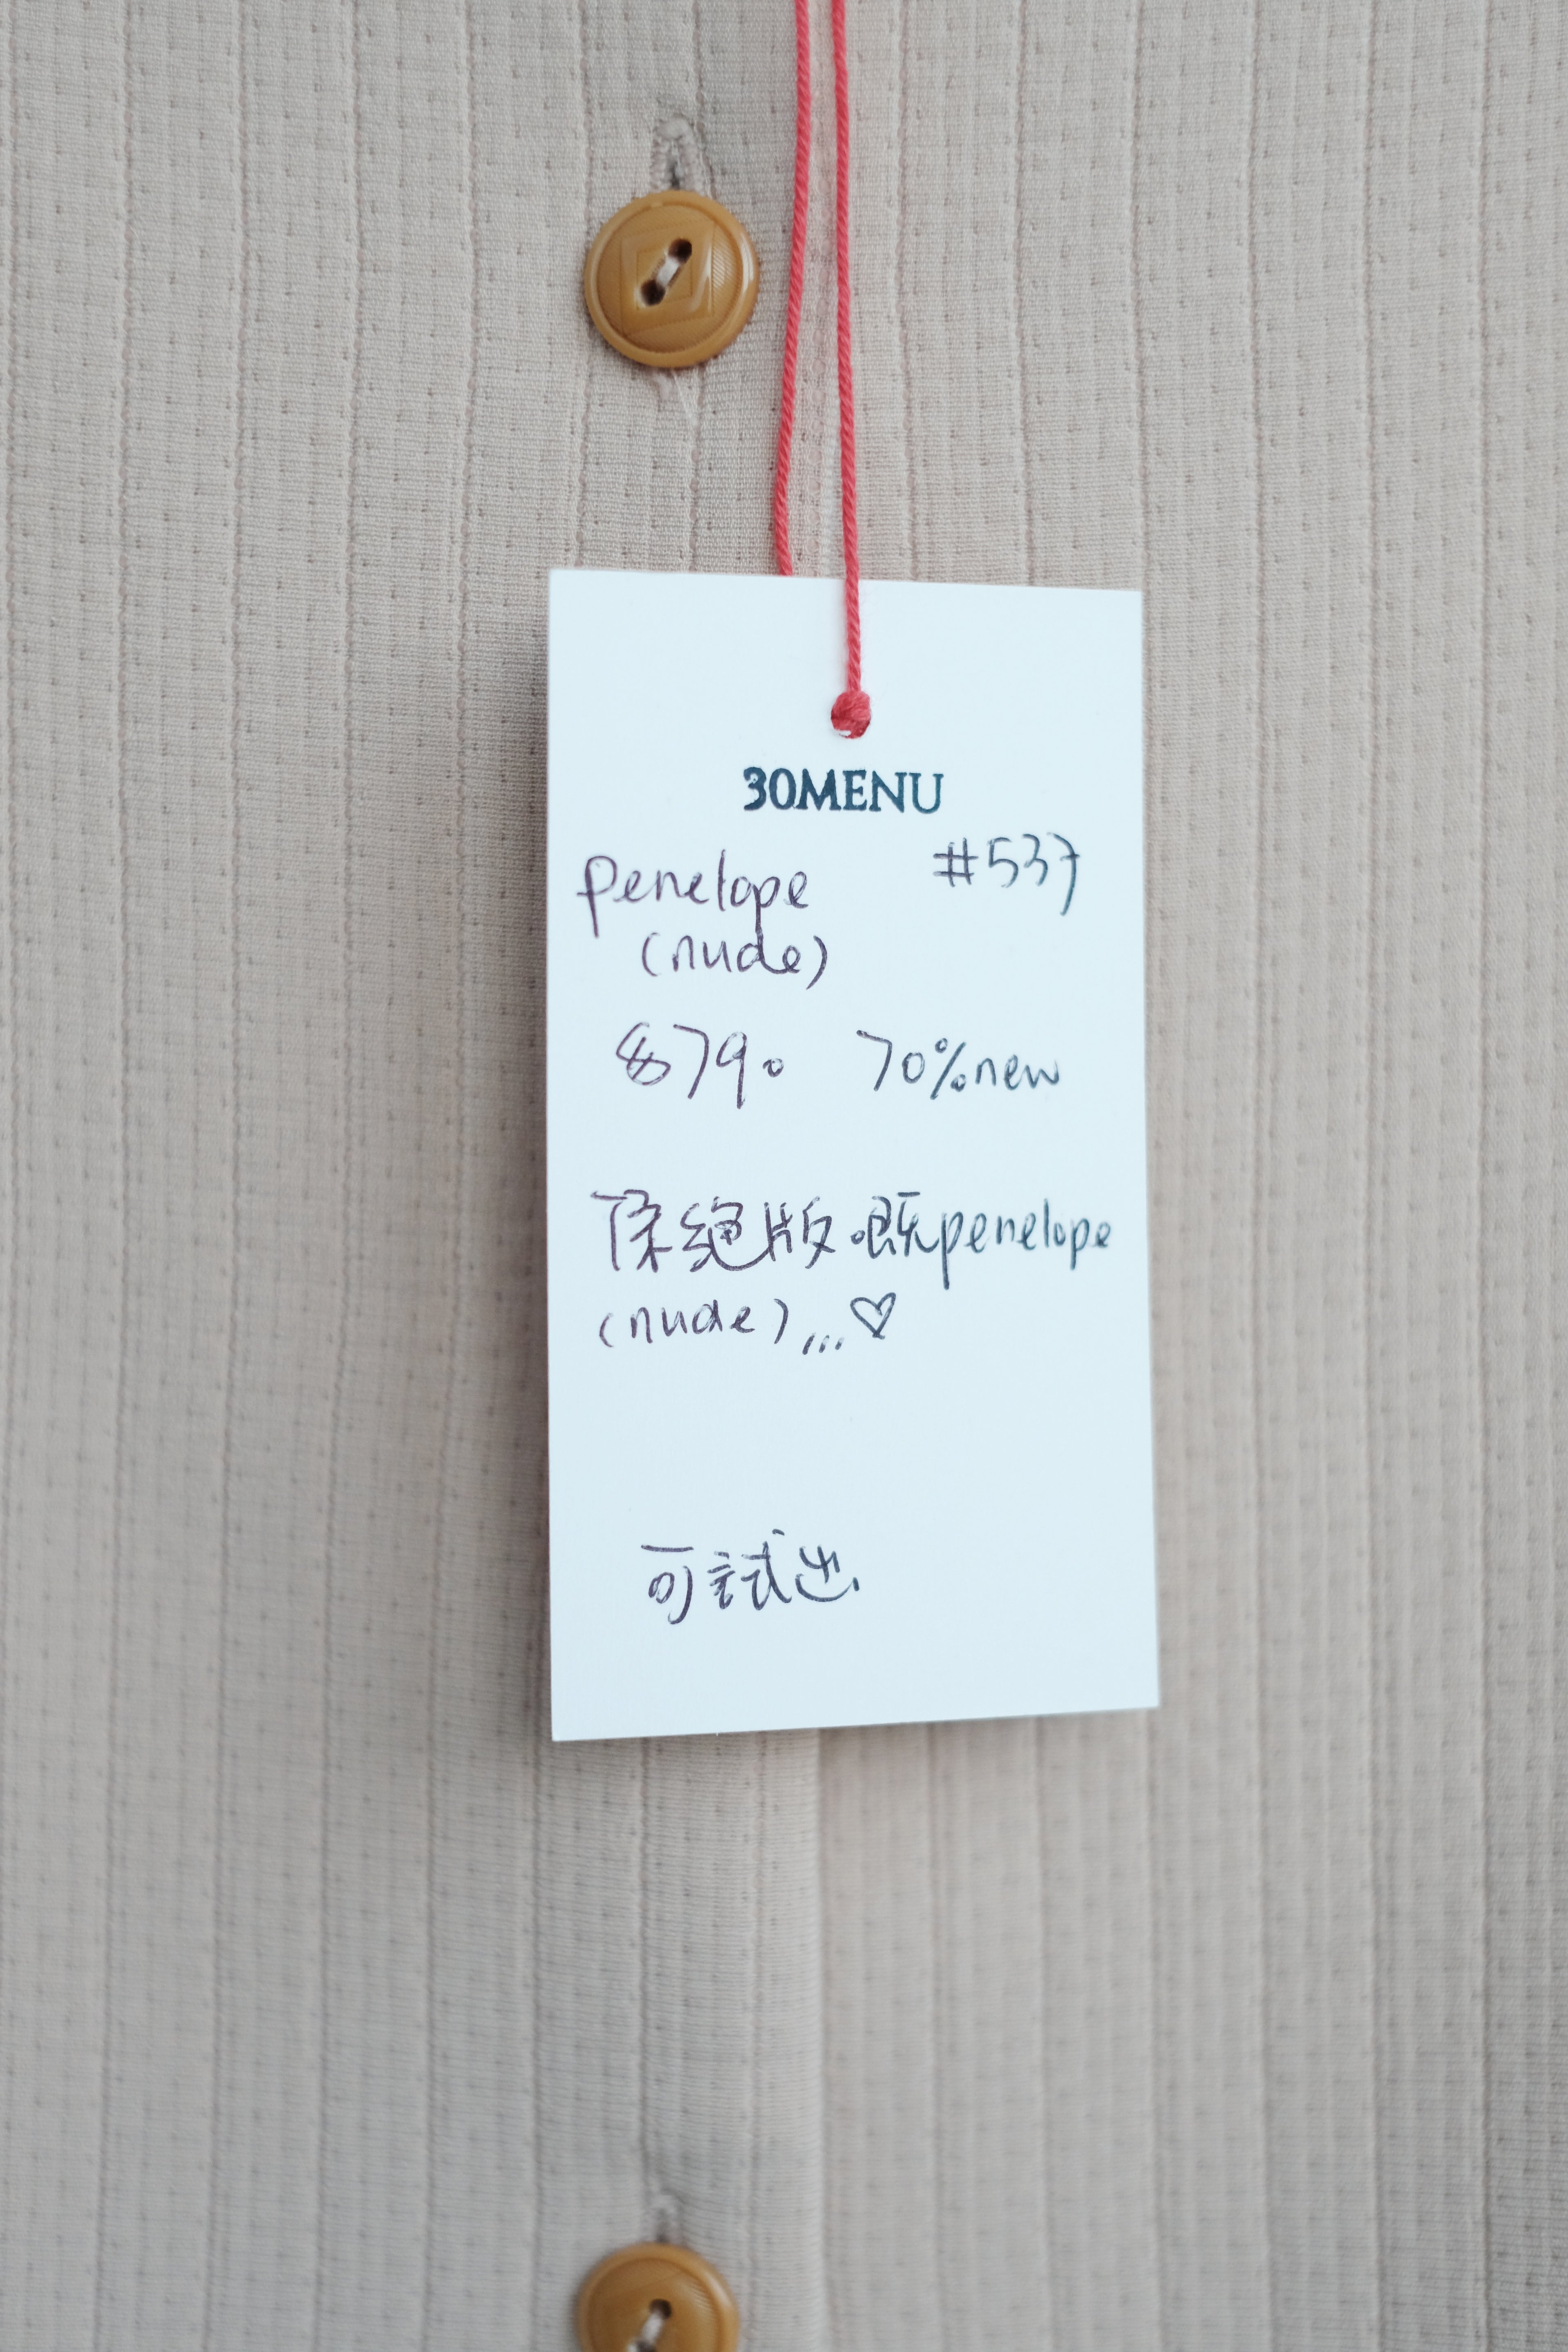 30MENU
penelope #537
(nude)
$790 70% new
係絕版嘅penelope
(nude)...♡
可試